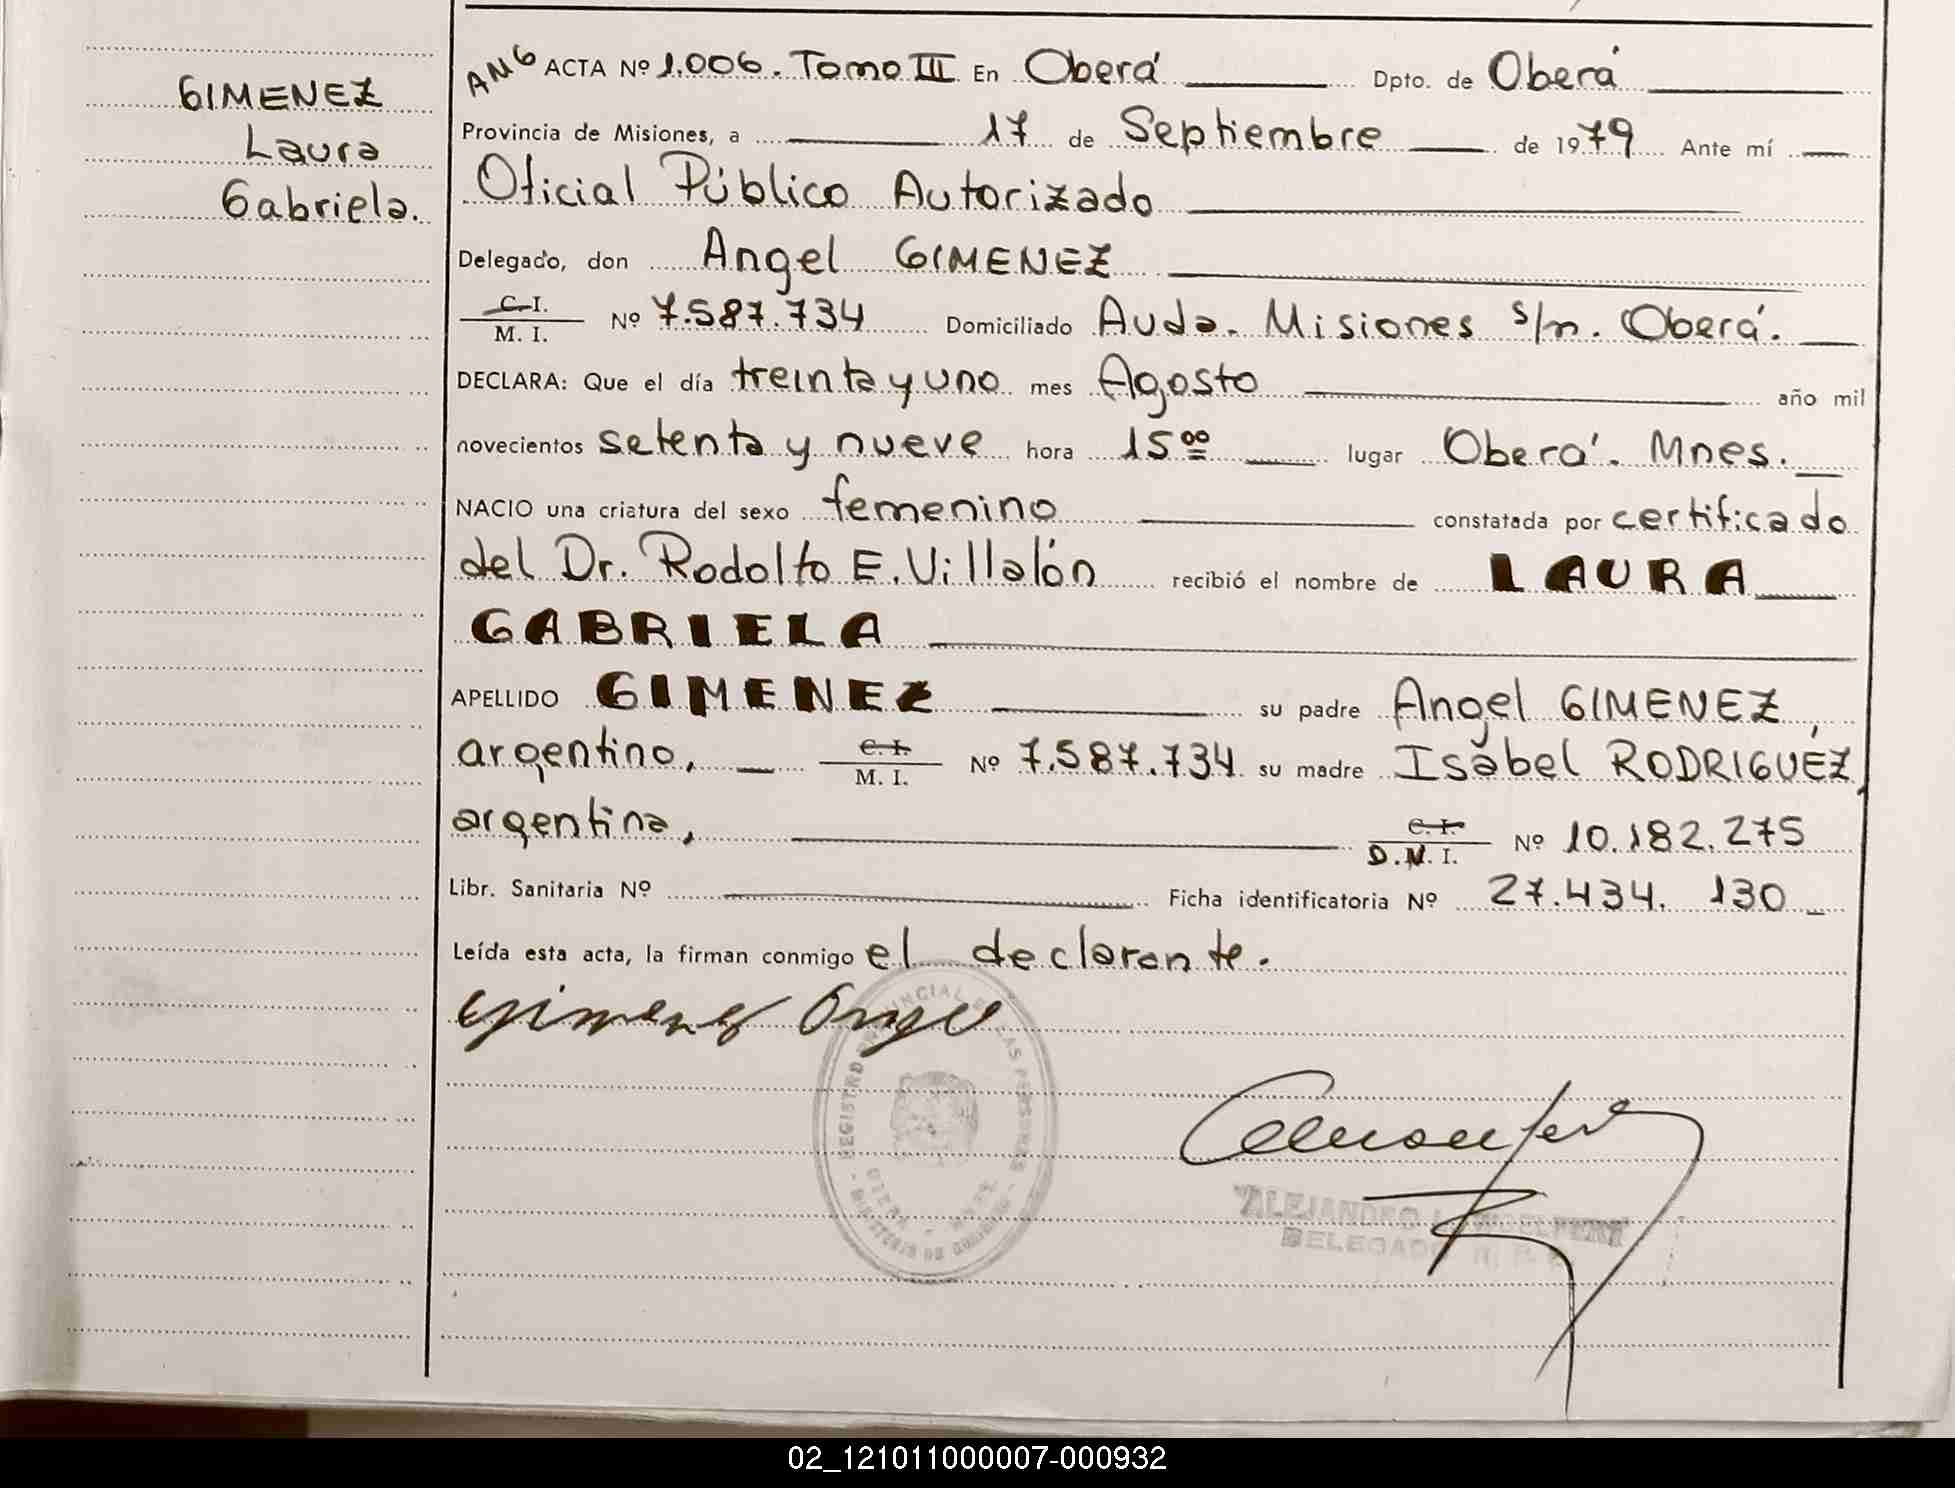 GIMENEZ
Laura
Gabriela.
AMG ACTA Nº 1.006. Tomo III En Oberá Dpto. de Oberá
Provincia de Misiones, a 17 de Septiembre de 1979 Ante mí
Oficial Público Autorizado
Delegado, don Angel GIMENEZ
C.I.
M. I. Nº 7.587.734 Domiciliado Avda. Misiones s/n. Oberá.
DECLARA: Que el día treinta y uno mes Agosto año mil
novecientos setenta y nueve hora 15 00 lugar Oberá. Mnes.
NACIO una criatura del sexo femenino constatada por certificado
del Dr. Rodolfo E. Villalón recibió el nombre de LAURA
GABRIELA
APELLIDO GIMENEZ su padre Angel GIMENEZ,
argentino, C.I. M. I. Nº 7.587.734 su madre Isabel RODRIGUEZ,
argentina, C.I. D.N.I. Nº 10.182.275
Libr. Sanitaria Nº Ficha identificatoria Nº 27.434.130
Leída esta acta, la firman conmigo el declarante.
Gimenez Angel
REGISTRO PROVINCIAL DE LAS PERSONAS
MINISTERIO DE GOBIERNO
ALEJANDRO
DELEGADO R. P. P.
02_121011000007-000932